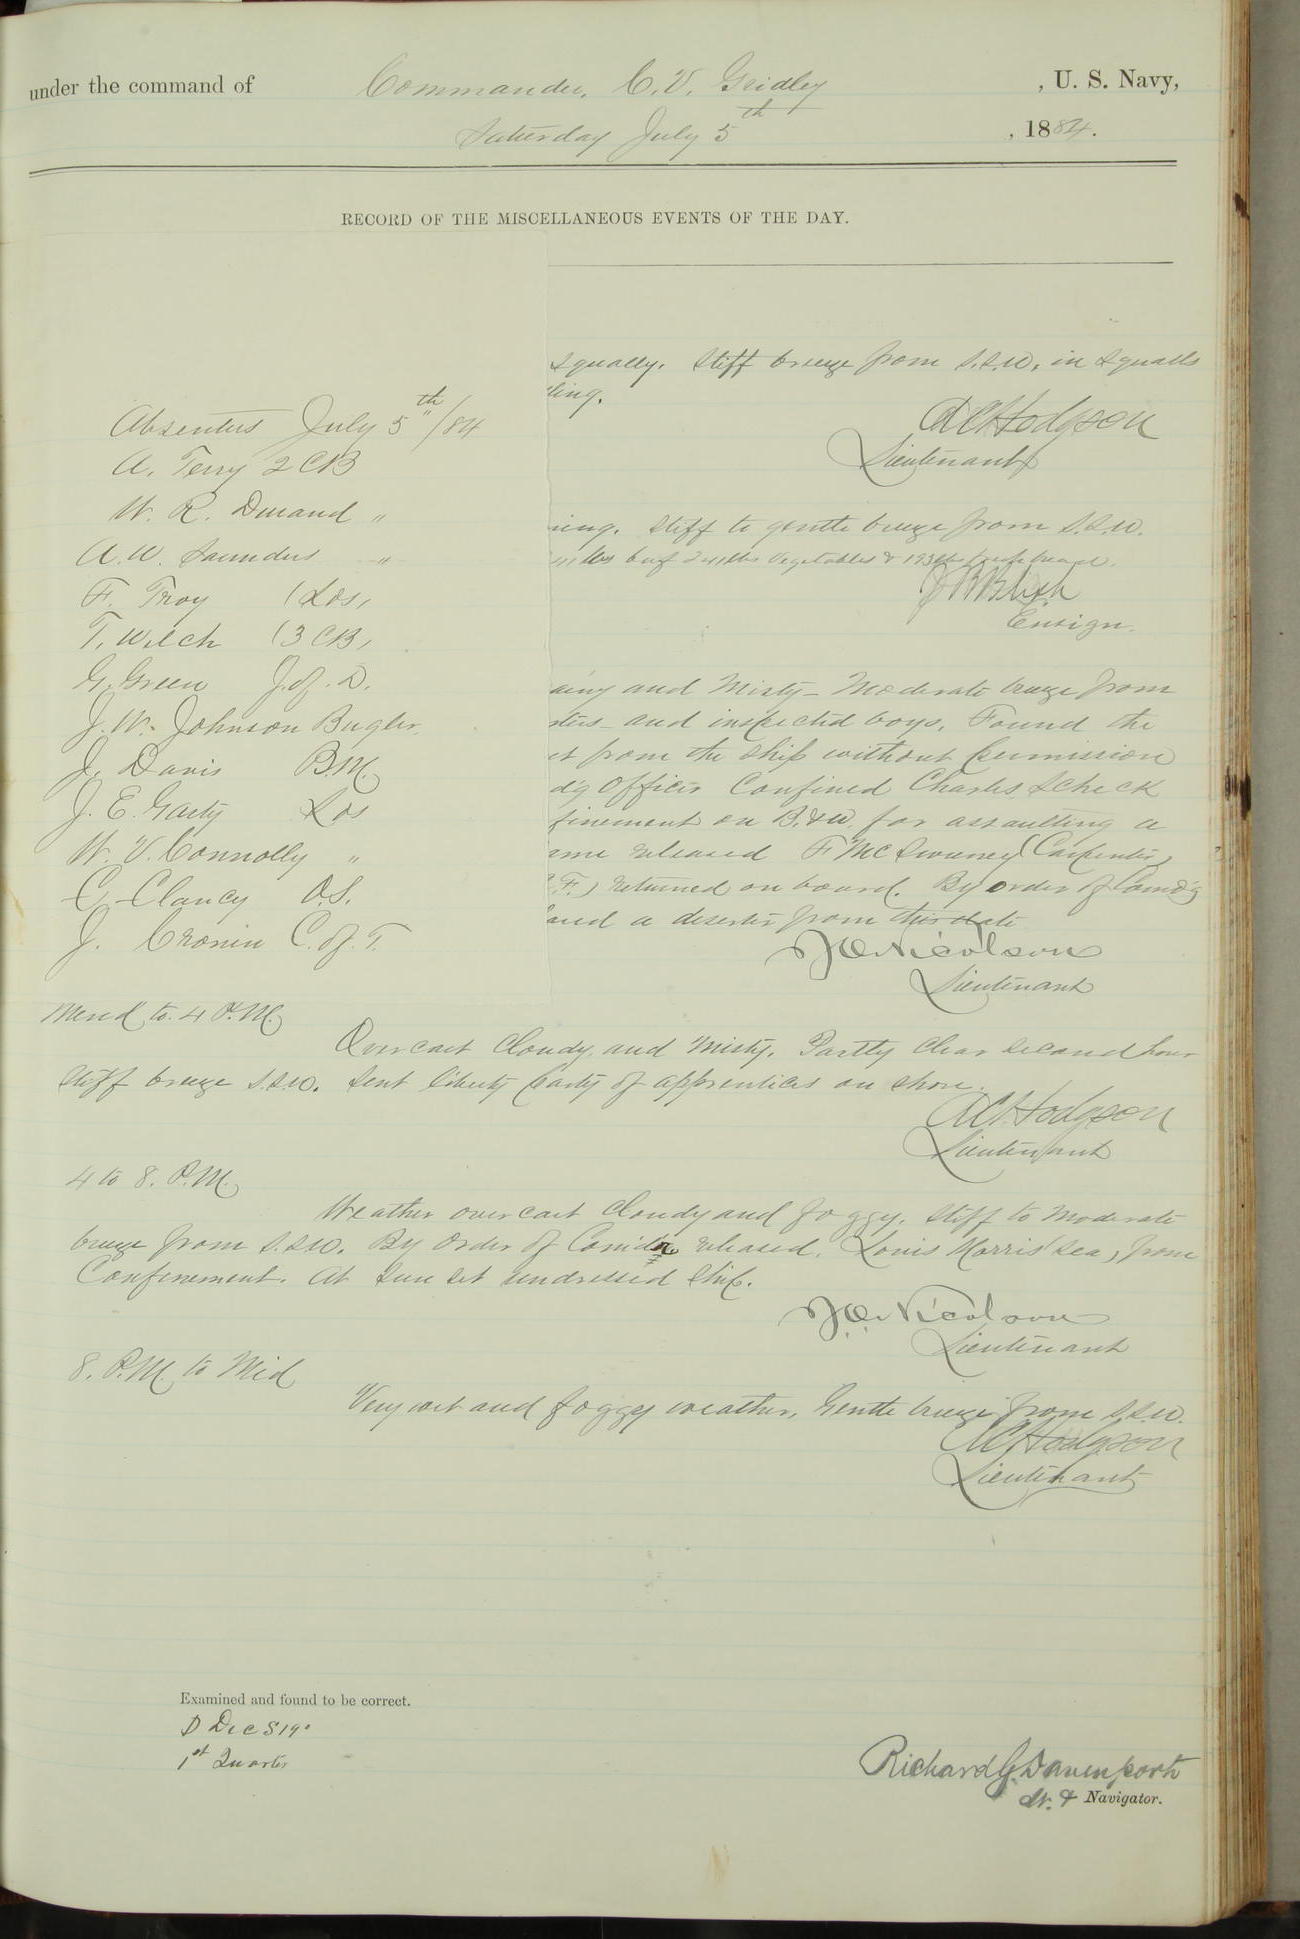 under the command of Commander, C. V. Gridley, U. S. Navy,
Saturday July 5th, 1884.
RECORD OF THE MISCELLANEOUS EVENTS OF THE DAY.
Absentees July 5th/84
A. Terry 2 CB
W. R. Durand "
A. W. Saunders "
F. Troy (Lds,
T. Welch (3 CB,
G. Green J. of. D.
J. W. Johnson Bugler
J. Davis B.M.
J. E. Garty Lds
W. V. Connolly "
C. Clancy O.S.
J. Cronin C. of. T.
squally. Stiff breeze from S.S.W. in squalls
ling.
A C Hodgson
Lieutenant
ning. Stiff to gentle breeze from S.S.W.
lbs beef 241 lbs Vegetables & 193 lbs fresh bread.
J B Blish
Ensign.
ainy and Misty - Moderate breeze from
ters and inspected boys. Found the
t from the ship without permission
d'g Officer Confined Charles Scheck
finement on B. & W. for assaulting a
ame released F McSweeney (Carpenter)
F.) returned on board. By order of Comd'g
ared a deserter from this date
J O Nicolson
Lieutenant
Merid to 4 P.M.
Overcast Cloudy and Misty. Partly clear second hour
Stiff breeze S.S.W. Sent liberty party of apprentices on shore.
A C Hodgson
Lieutenant
4 to 8. P.M.
Weather overcast Cloudy and foggy. Stiff to Moderate
breeze from S.S.W. By Order of released. Louis Morris (Sea, from
Confinement. At Sun set undressed Ship.
J O Nicolson
Lieutenant
8. P.M. to Mid
Very wet and foggy weather, Gentle breeze from S.S.W.
A C Hodgson
Lieutenant
Examined and found to be correct.
D Dec S 19°
1st Quarter
Richard G. Davenport
Lt. & Navigator.